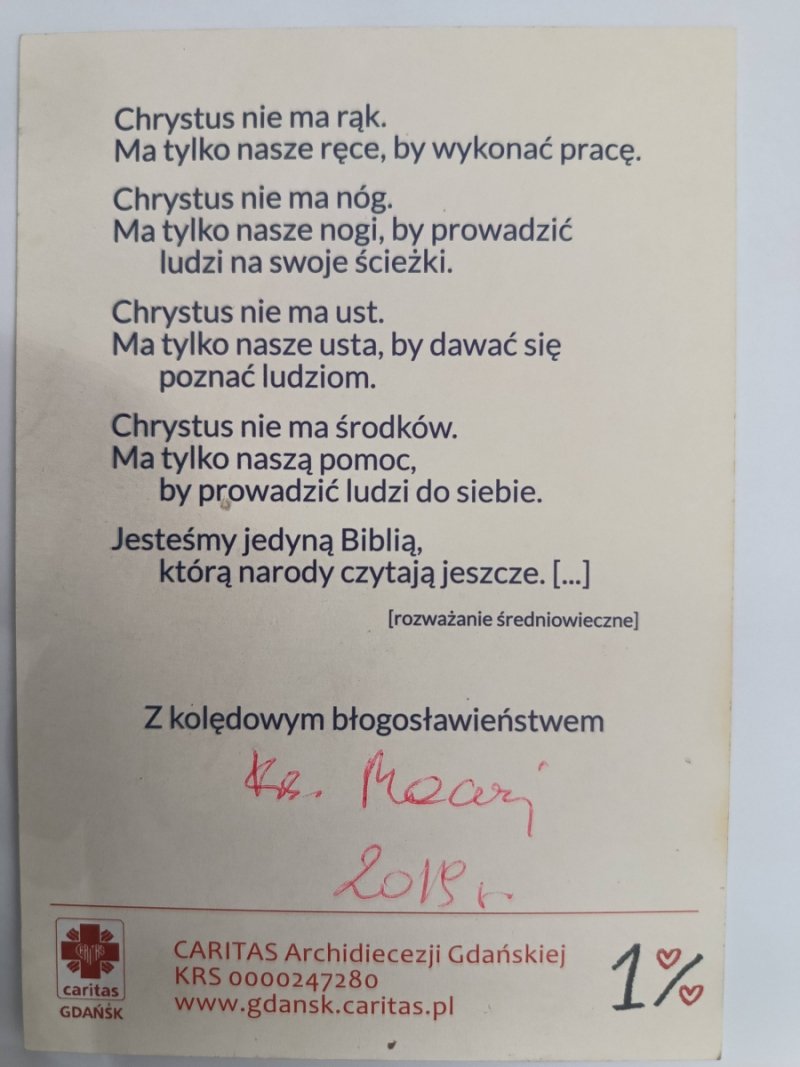 Chrystus nie ma rąk.
Ma tylko nasze ręce, by wykonać pracę.
Chrystus nie ma nóg.
Ma tylko nasze nogi, by prowadzić
ludzi na swoje ścieżki.
Chrystus nie ma ust.
Ma tylko nasze usta, by dawać się
poznać ludziom.
Chrystus nie ma środków.
Ma tylko naszą pomoc,
by prowadzić ludzi do siebie.
Jesteśmy jedyną Biblią,
którą narody czytają jeszcze. [...]
[rozważanie średniowieczne]
Z kolędowym błogosławieństwem
Ks.
2019 r.
CARITAS
caritas
GDAŃSK
CARITAS Archidiecezji Gdańskiej
KRS 0000247280
www.gdansk.caritas.pl
1%